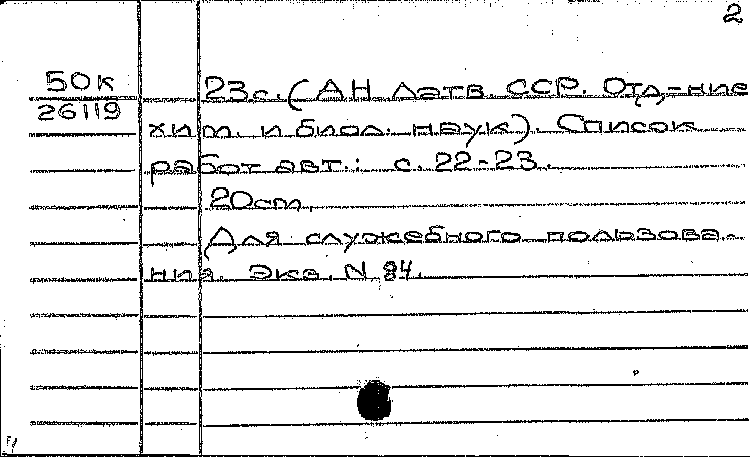 2
50к
26119
23с. (АН Латв. ССР. Отд-ние
хим. и биол. наук). Список
работ авт.: с. 22-23.
20cm.
Для служебного пользова-
ния. Экз. N 84.